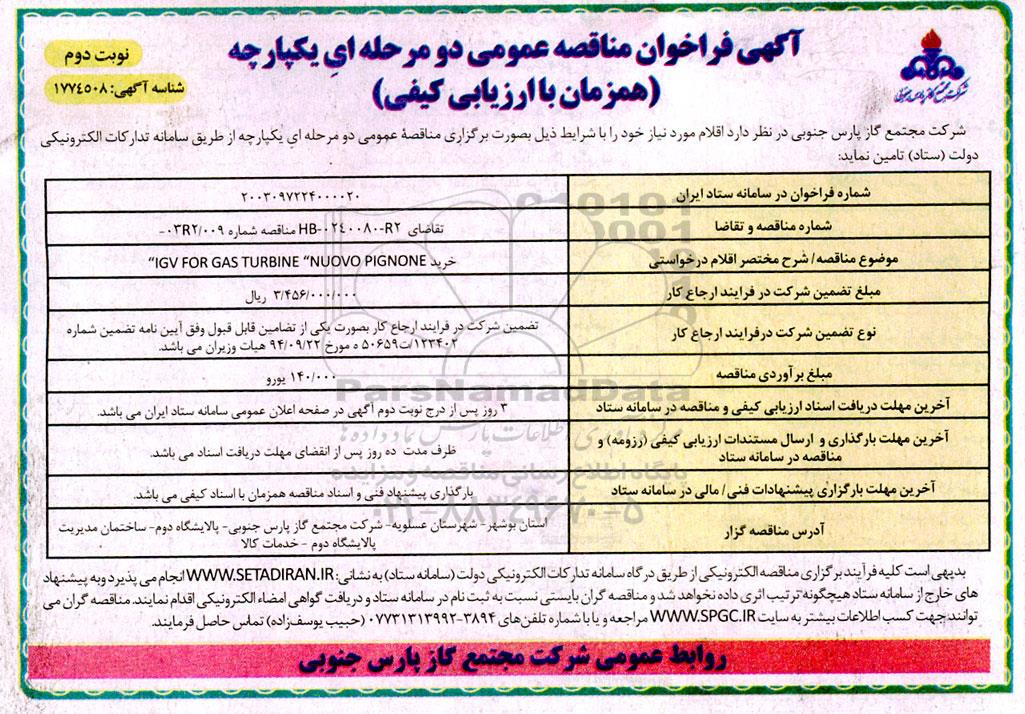 آگهی فراخوان مناقصه عمومی دو مرحله ای یکپارچه
(همزمان با ارزیابی کیفی)
نوبت دوم
شناسه آگهی: ۱۷۷٤٥٠۸
شرکت مجتمع گاز پارس جنوبی
شرکت مجتمع گاز پارس جنوبی در نظر دارد اقلام مورد نیاز خود را با شرایط ذیل بصورت برگزاری مناقصۀ عمومی دو مرحله ای یکپارچه از طریق سامانه تدارکات الکترونیکی
دولت (ستاد) تامین نماید:
شماره فراخوان در سامانه ستاد ایران
۲۰۰۳۰۹۷۲۲۴۰۰۰۰۲۰
شماره مناقصه و تقاضا
تقاضای HB-۰۲٤۰۰۸۰-R۲ مناقصه شماره ۰۳R۲/۰۰۹-
موضوع مناقصه/ شرح مختصر اقلام درخواستی
خرید IGV FOR GAS TURBINE “NUOVO PIGNONE“
مبلغ تضمین شرکت در فرایند ارجاع کار
۳/۴۵۶/۰۰۰/۰۰۰ ریال
نوع تضمین شرکت درفرایند ارجاع کار
تضمین شرکت در فرایند ارجاع کار بصورت یکی از تضامین قابل قبول وفق آیین نامه تضمین شماره
۱۲۳۴۰۲/ت۵۰۶۵۹ ه مورخ ۹۴/۰۹/۲۲ هیات وزیران می باشد.
مبلغ برآوردی مناقصه
۱۴۰/۰۰۰ یورو
آخرین مهلت دریافت اسناد ارزیابی کیفی و مناقصه در سامانه ستاد
۳ روز پس از درج نوبت دوم آگهی در صفحه اعلان عمومی سامانه ستاد ایران می باشد.
آخرین مهلت بارگذاری و ارسال مستندات ارزیابی کیفی (رزومه) و
مناقصه در سامانه ستاد
ظرف مدت ده روز پس از انقضای مهلت دریافت اسناد می باشد.
آخرین مهلت بارگزاری پیشنهادات فنی/ مالی در سامانه ستاد
بارگذاری پیشنهاد فنی و اسناد مناقصه همزمان با اسناد کیفی می باشد.
آدرس مناقصه گزار
استان بوشهر- شهرستان عسلویه- شرکت مجتمع گاز پارس جنوبی- پالایشگاه دوم- ساختمان مدیریت
پالایشگاه دوم - خدمات کالا
ParsNamadData
پایگاه اطلاع رسانی مناقصه و مزایده
۰۲۱-۸۸۳۴۹۶۷۰-۵
بدیهی است کلیه فرآیند برگزاری مناقصه الکترونیکی از طریق درگاه سامانه تدارکات الکترونیکی دولت (سامانه ستاد) به نشانی: WWW.SETADIRAN.IR انجام می پذیرد و به پیشنهاد
های خارج از سامانه ستاد هیچگونه ترتیب اثری داده نخواهد شد و مناقصه گران بایستی نسبت به ثبت نام در سامانه ستاد و دریافت گواهی امضاء الکترونیکی اقدام نمایند. مناقصه گران می
توانند جهت کسب اطلاعات بیشتر به سایت WWW.SPGC.IR مراجعه و یا با شماره تلفن‌های ۳۸۹۴-۰۷۷۳۱۳۱۳۹۹۲ (حبیب یوسف‌زاده) تماس حاصل فرمایند.
روابط عمومی شرکت مجتمع گاز پارس جنوبی